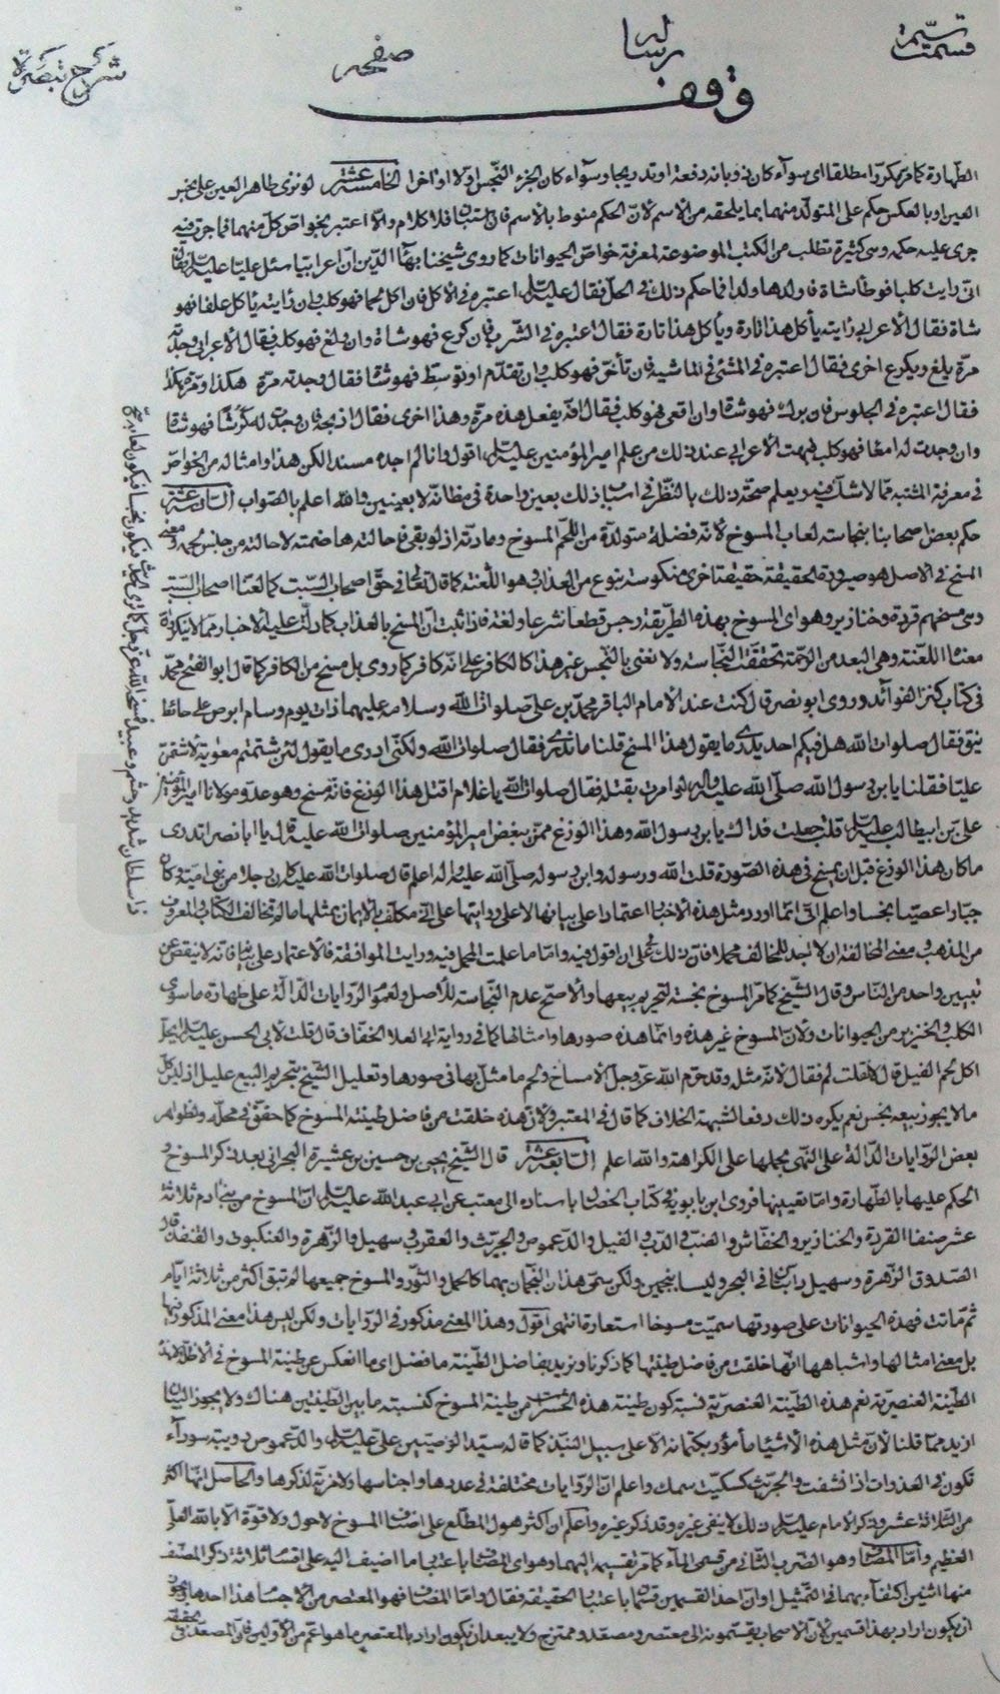 قسمت سیّم
رساله
صفحه
شرح تبصرة
وقف
الطهارة كما مر مكررا مطلقا اى سوآء كان ذوبانه دفعة او تدريجا وسوآء كان الجزء النجس اولا او اخرا الخامسة عشر لو نزى طاهر العين على نجس
العين او بالعكس حكم على المتولّد منهما بما يلحقه من الاسم لانّ الحكم منوط بالاسم فان استبان فلا كلام والّا اعتبر بخواصّ كلّ منهما فما جرت فيه
جرى عليه حكمه وهى كثيرة تطلب من الكتب الموضوعة لمعرفة خواصّ الحيوانات كما روى شيخنا بهآء الدّين ان اعرابيا سئل عليّا عليه السّلم فقال
انّى رايت كلبا فوطأ شاة فاولدها ولدا فما حكم ذلك فى الحلّ فقال عليه السّلم اعتبره فى الاكل فان اكل لحما فهو كلب وان رايته ياكل علفا فهو
شاة فقال الاعرابى رايته يأكل هذا تارة ويأكل هذا تارة فقال اعتبره فى الشّرب فان كرع فهو شاة وان ولغ فهو كلب فقال الاعرابى وجدته
مرّة يلغ ويكرع اخرى فقال اعتبره فى المشى فى الماشية فان تأخّر فهو كلب وان تقدّم او توسّط فهو شاة فقال وجدته مرّة هكذا ومرّة هكذا
فقال اعتبره فى الجلوس فان برك فهو شاة وان اقعى فهو كلب فقال انّه يفعل هذه مرّة وهذا اخرى فقال اذبحه فان وجدت له كرشا فهو شاة
وان وجدت له امعا فهو كلب فبهت الاعرابى عند ذلك من علم امير المؤمنين عليه السّلم اقول وانا لم اجده مسندا لكن هذا وامثاله من الخواصّ
فى معرفة المشتبه ممّا لا شكّ فيه ويعلم صحّة ذلك بالنّظر فى اسباب ذلك بعين واحدة فى مظانّه لا بعينين والله اعلم بالصّواب السّادسة عشر
حكم بعض اصحابنا بنجاسة لعاب المسوخ لانّه فضلة متولّدة من اللّحم الممسوخ
المسخ فى الاصل هو صيرورة الحقيقة حقيقة اخرى منكوسة بنوع من العذاب هو اللّعنة كما قال تعالى فى حقّ اصحاب السّبت كما لعنّا اصحاب السّبت
معناه اللعنة وهى البعد من الرّحمة تحققت النّجاسة ولا نعنى بالنّجس غير هذا كالكافر على انّه كافر كما روى بل مسخ من الكافر كما قال ابو الفتح محمّد
فى كتاب كنز الفوآئد وروى ابو نصر قال كنت عند الامام الباقر محمّد بن على صلوات الله وسلامه عليهما ذات يوم وسام ابرص على حائط
ينق فقال صلوات الله هل فيكم احد يدرى ما يقول هذا المسخ قلنا ما ندرى فقال صلوات الله ولكنّى ادرى ما يقول لئن شتمتم معوية لاشتمنّ
عليّا فقلنا يابن رسول الله صلّى الله عليه وآله لو امرت بقتله فقال صلوات الله يا غلام اقتل هذا الوزغ فانّه مسخ وهو عدوّ مولانا امير المؤمنين
علىّ بن ابيطالب عليه السّلم قلت جعلت فداك يابن رسول الله وهذا الوزغ ممّن يبغض امير المؤمنين صلوات الله عليه قال يا ابا نصر اتدرى
ما كان هذا الوزغ قبل ان يمسخ فى هذه الصّورة قلت الله ورسوله وابن رسوله صلّى الله عليه واله اعلم قال صلوات الله عليه كان رجلا من بنى اميّة وكان
جبّارا عصيّا نجسا واعلم انّى انّما اورد مثل هذه الاخبار اعتمادا على بيانها لا على روايتها على انّه مكلّف بالايمان بمثلها ما لم تخالف الكتاب والمعروف
من المذهب ومعنى المخالفة ان لا تجد للمخالف محملا فانّ ذلك علىّ ان اقول فيه وامّا ما علمت المحمل فيه ورايت الموافقة فالاعتماد على بيانه لا ينقص عن
تبيين واحد من النّاس وقال الشّيخ كما مر المسوخ نجسة لتحريم بيعها والاصحّ عدم النّجاسة للاصل ولعموم الرّوايات الدّالّة على طهارة ما سوى
الكلب والخنزير من الحيوانات ولانّ المسوخ غير هذه وانّما هذه صورها وامثالها كما فى رواية ابى العلا الخفّاف قال قلت لابى الحسن عليه السّلم ايحلّ
اكل لحم الفيل قال لا قلت لم فقال لانّه مثلة وقد حرّم الله عزّ وجلّ الامساخ ولحم ما مثل بها فى صورها وتعليل الشّيخ بتحريم البيع عليل اذ ليس كلّ
ما لا يجوز بيعه نجس نعم يكره ذلك دفعا لشبهة الخلاف كما قال فى المعتبر ولانّ هذه خلقت من فاضل طينة المسوخ كما حقّق فى محلّه ولظواهر
بعض الرّوايات الدّالّة على النّهى محملها على الكراهة والله اعلم السّابعة عشر قال الشّيخ يحيى بن حسين بن عشيرة البحرانى بعد ذكر المسوخ و
الحكم عليها بالطّهارة وامّا تعيينها فروى ابن بابويه فى كتاب الخصال باسناده الى معتب عن ابى عبد الله عليه السّلم انّ المسوخ من بنى ادم ثلاثة
عشر صنفا القردة والخنازير والخفّاش والضّبّ والدّبّ والفيل والدّعموص والجرّيث والعقرب وسهيل والزّهرة والعنكبوت والقنفذ قال
الصّدوق الزّهرة وسهيل دابّتان فى البحر وليسا بنجمين ولكن سمّى هذان النّجمان بهما كالحمل والثّور والمسوخ جميعها لم تبق اكثر من ثلاثة ايّام
ثمّ ماتت فهذه الحيوانات على صورتها سمّيت مسوخا استعارة انتهى اقول وهذا المعنى مذكور فى الرّوايات ولكن ليس هذا معنى المذكور فيها
بل معنى امثالها واشباهها انّها خلقت من فاضل طينتها كما ذكرنا ونريد بفاضل الطّينة ما فضل اى ما انعكس عن طينة المسوخ فى الاظلّة
الطّينة العنصريّة نعم هذه الطّينة العنصريّة نسبة كون طينة هذه الحشرات من طينة المسوخ كنسبة ما بين الطّينتين هناك ولا يجوز البيان
ازيد ممّا قلنا لانّ مثل هذه الاشياء مأمور بكتمانه الّا على سبيل النّبذ كما قاله سيّد الوصيّين علىّ عليه السّلم والدّعموص دويبة سودآء
تكون فى الغدران اذا نشفت والجرّيث كسكّيت سمك واعلم انّ الرّوايات مختلفة فى عددها واجناسها ولا مزيّة لذكرها والحاصل انّها اكثر
من الثّلاثة عشر وذكر الامام عليه السّلم ذلك لا ينفى غيره وقد ذكر غيره واعلم انّ اكثر هول المطّلع على اصناف المسوخ لا حول ولا قوّة الّا بالله العلىّ
العظيم وامّا المضاف وهو الضّرب الثّانى من قسمى المآء كما مرّ تقسيمه اليهما وهو اى المضاف باعتبار ما اضيف اليه على اقسام ثلاثة ذكر المصنّف
منها اثنين اكتفآء بهما فى التّمثيل او انّ احد القسمين قسمان باعتبار الحقيقة فقال وامّا المضاف فهو المعتصر من الاجسام هذا احدها ويجوز
ان يكون اراد بهذا قسمين لانّ الاصحاب يقسّمونه الى معتصر ومصعّد وممتزج ولا يبعد ان يكون اراد بالمعتصر ما هو اعمّ من الاوّلين